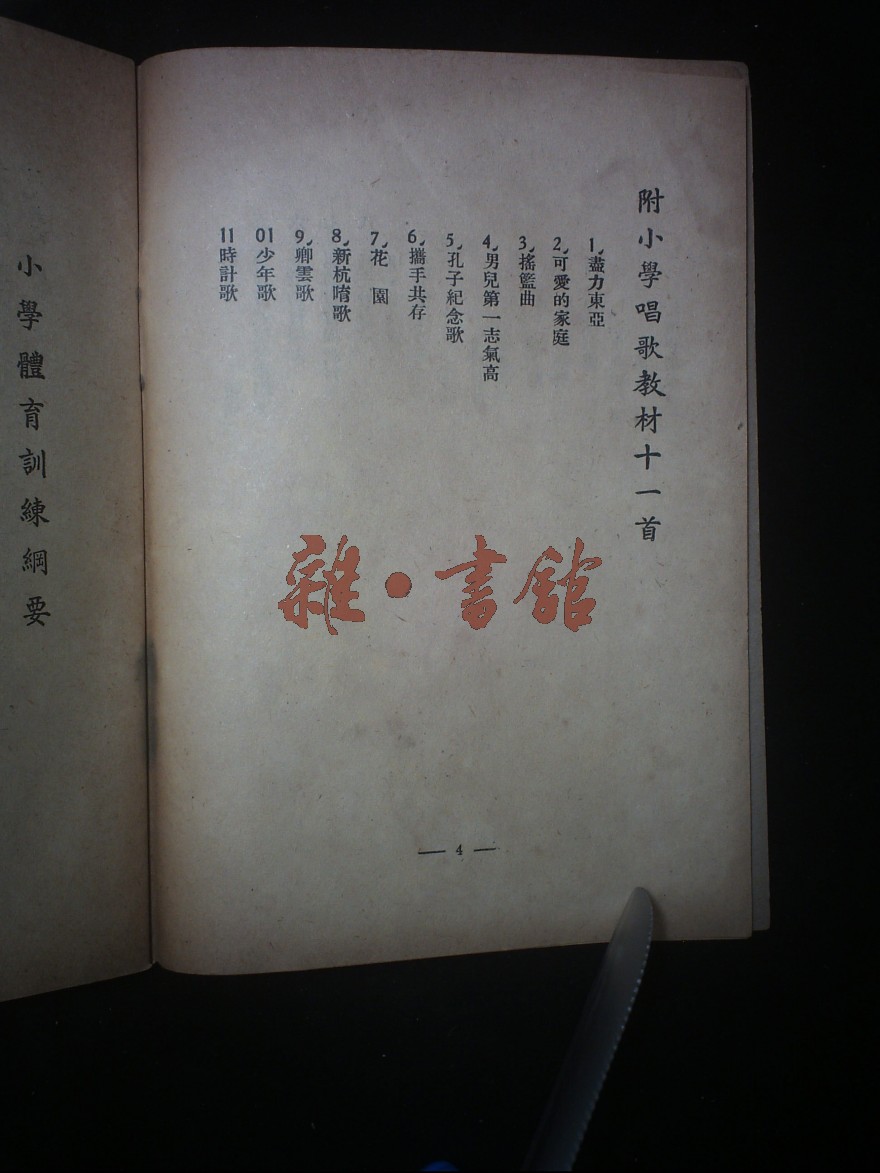 附小學唱歌教材十一首
1、盡力東亞
2、可愛的家庭
3、搖籃曲
4、男兒第一志氣高
5、孔子紀念歌
6、攜手共存
7、花　園
8、新杭唷歌
9、卿雲歌
01少年歌
11時計歌
— 4 —
小學體育訓練綱要
雜·書館